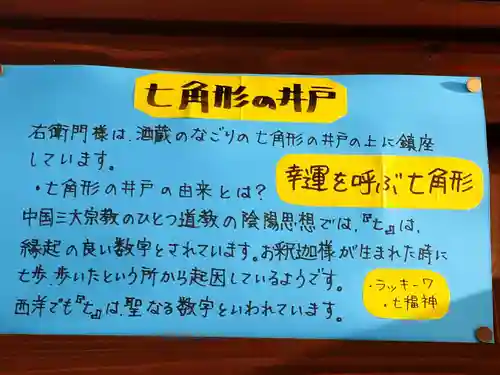 七角形の井戸
右衛門様は、酒蔵のなごりの七角形の井戸の上に鎮座
しています。
・七角形の井戸の由来とは?
幸運を呼ぶ七角形
中国三大宗教のひとつ道教の陰陽思想では、『七』は、
縁起の良い数字とされています。お釈迦様が生まれた時に
七歩、歩いたという所から起因しているようです。
西洋でも『七』は、聖なる数字といわれています。
・ラッキー7
・七福神